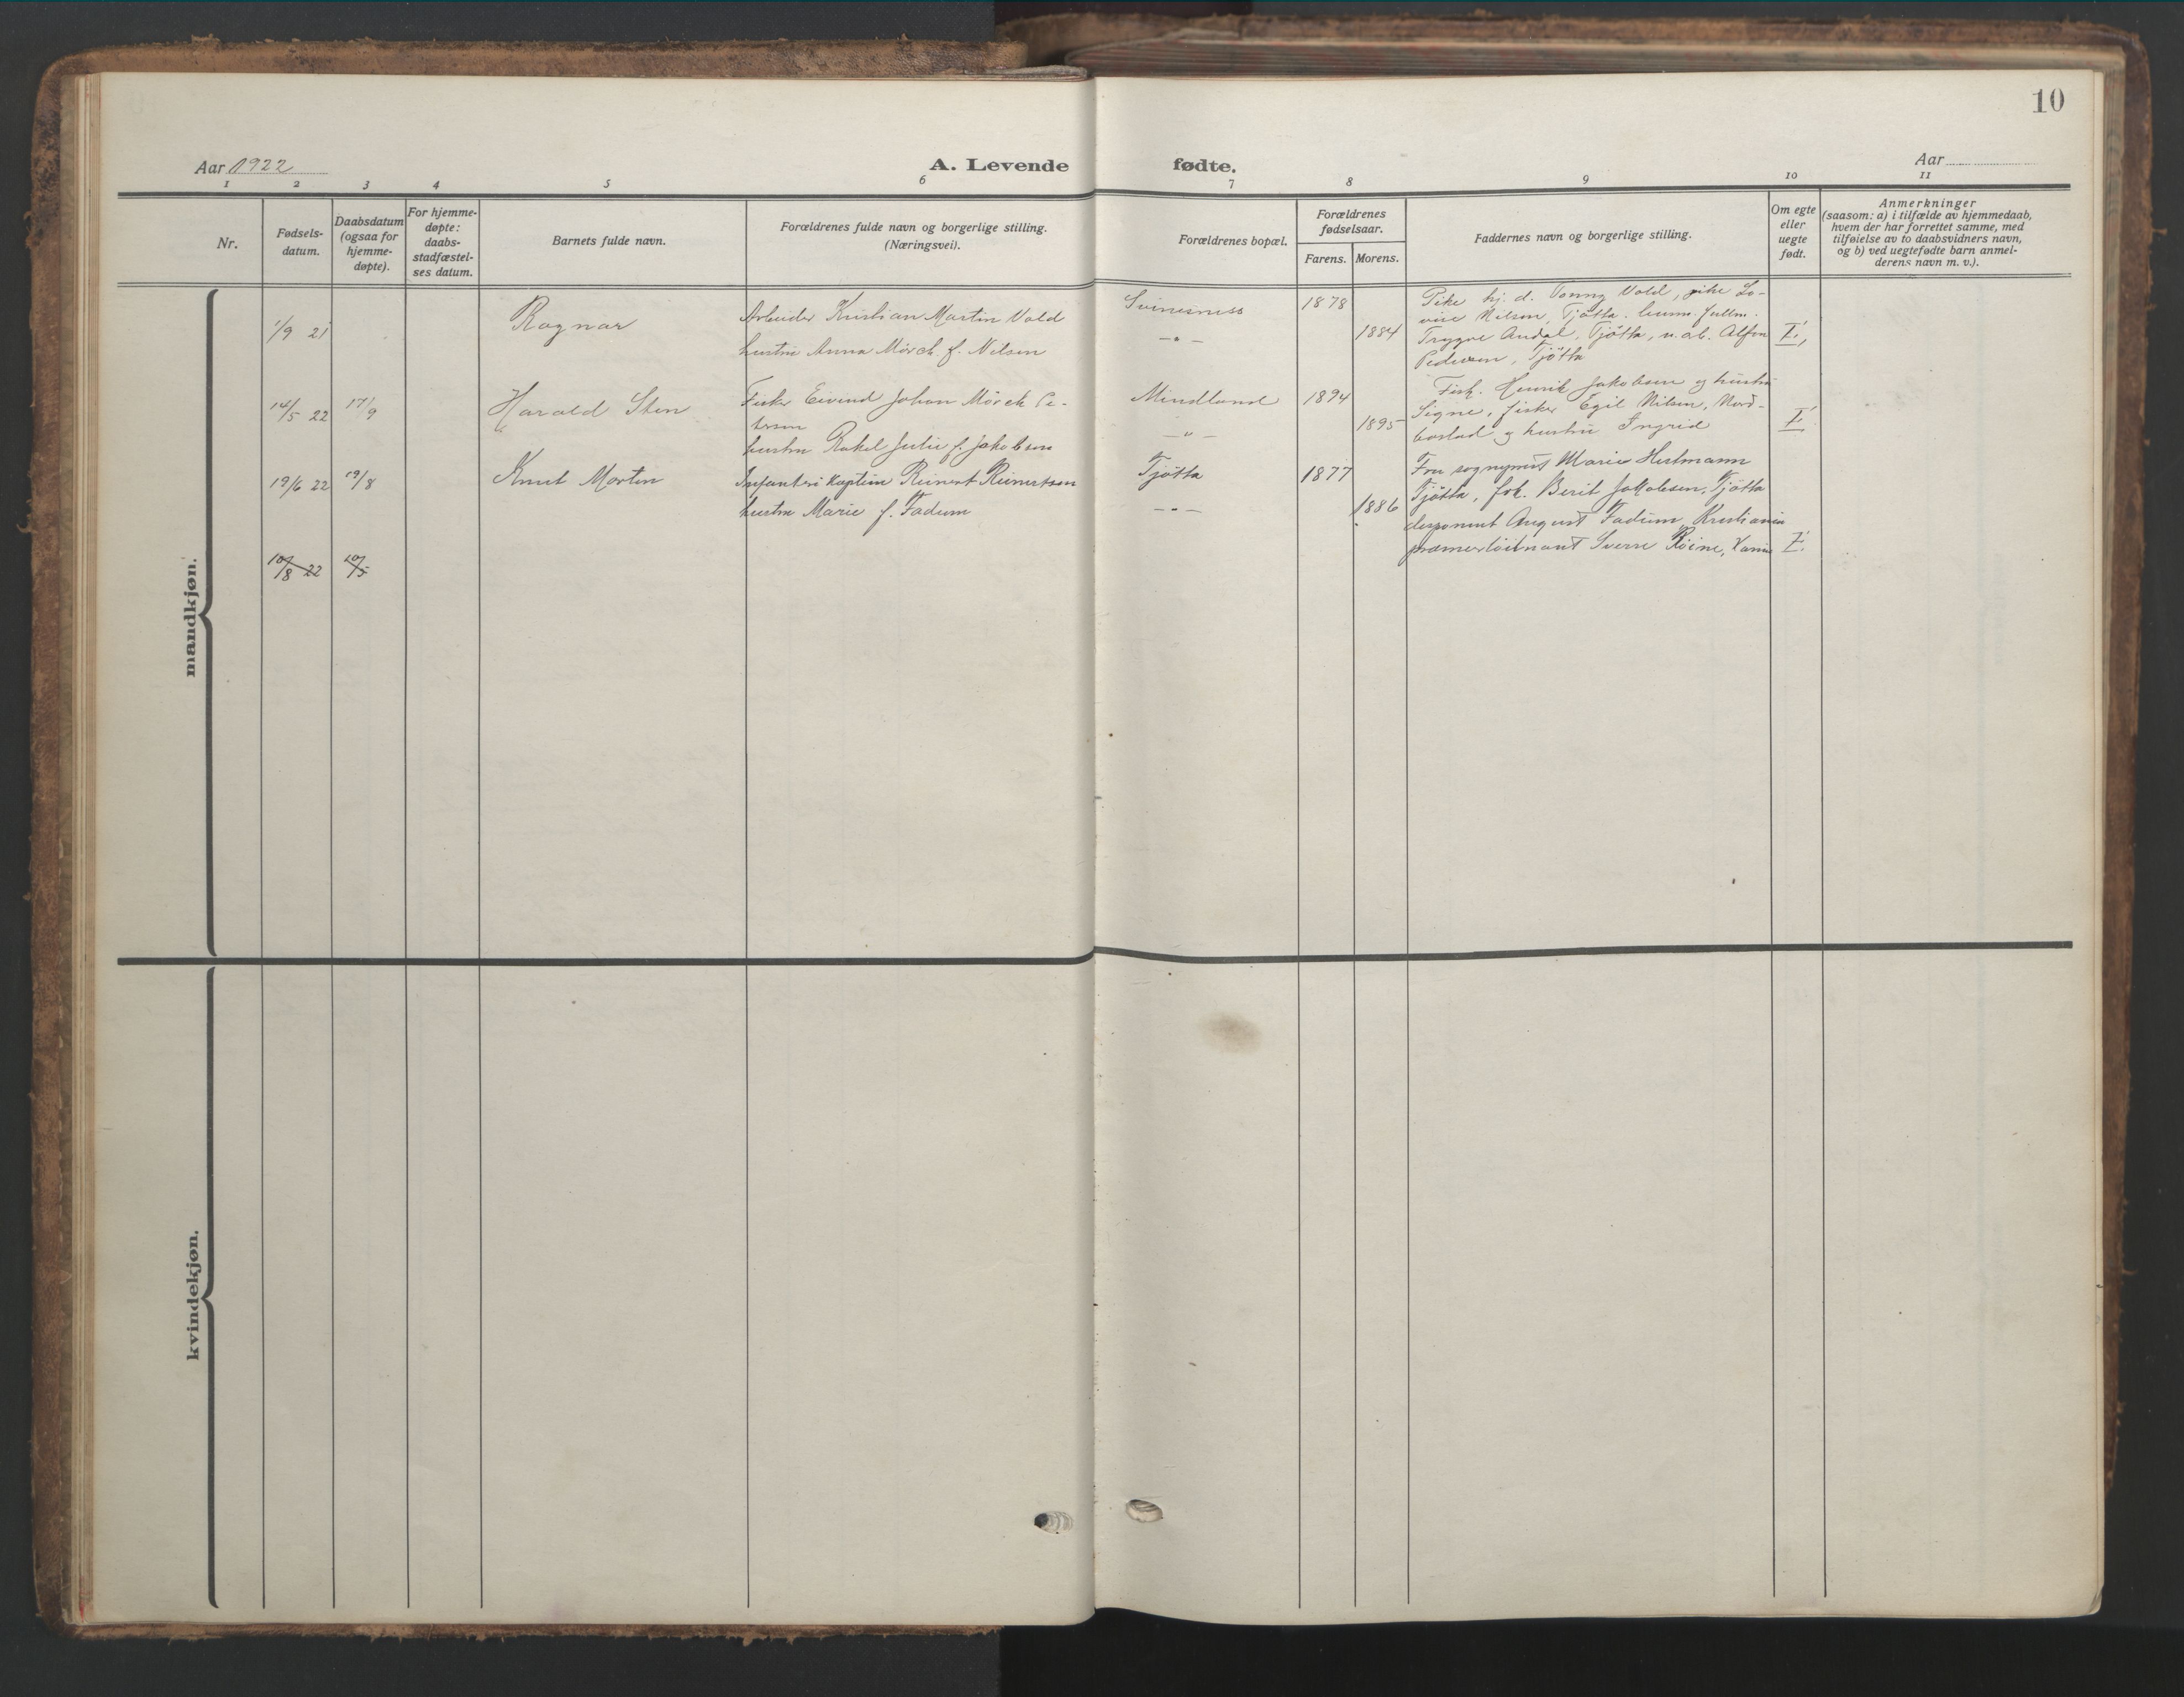 10
Aar 1922
A. Levende fødte.
Aar
1 2 3 4 5 6 7 8 9 10 11
Nr.
Fødsels-
datum.
Daabsdatum
(ogsaa for
hjemme-
døpte).
For hjemme-
døpte:
daabs-
stadfæstel-
ses datum.
Barnets fulde navn.
Forældrenes fulde navn og borgerlige stilling.
(Næringsvei).
Forældrenes bopæl.
Forældrenes
fødselsaar.
Farens. Morens.
Faddernes navn og borgerlige stilling.
Om egte
eller
uegte
født.
Anmerkninger
(saasom: a) i tilfælde av hjemmedaab,
hvem der har forrettet samme, med
tilføielse av to daabsvidners navn,
og b) ved uegtefødte barn anmel-
derens navn m. v.).
mandkjøn.
1/9 21
Ragnar
Arbeider Kristian Martin Vold
hustru Anna Mörch f. Nilsen
Svinesness
— " —
1878
1884
Pike hj. d. Vold, pike Lo-
vise Nilsen, Tjötta.
Trygve Andal, Tjötta, Alfon
Pedersen, Tjötta
E.
14/5 22
17/9
Harald Sten
Fisker Eivind Johan Mörch Pe-
tersen
hustru Rakel Julie f. Jakobsen
Mindland
— " —
1894
1895
Fisk. Henrik Jakobsen og hustru
Signe, fisker Egil Nilsen, Nord-
og hustru Ingrid
E.
19/6 22
19/8
Knut Morten
Infanteri kaptein Reinert Reinertsen
hustru Marie f. Fadum
Tjötta
— " —
1877
1886
Fru Marie
Tjötta, frk. Berit Jakobsen, Tjötta
disponent August Fadum, Kristiania
premierlöitnant Sverre
E.
10/8 22
10/5
kvindekjøn.